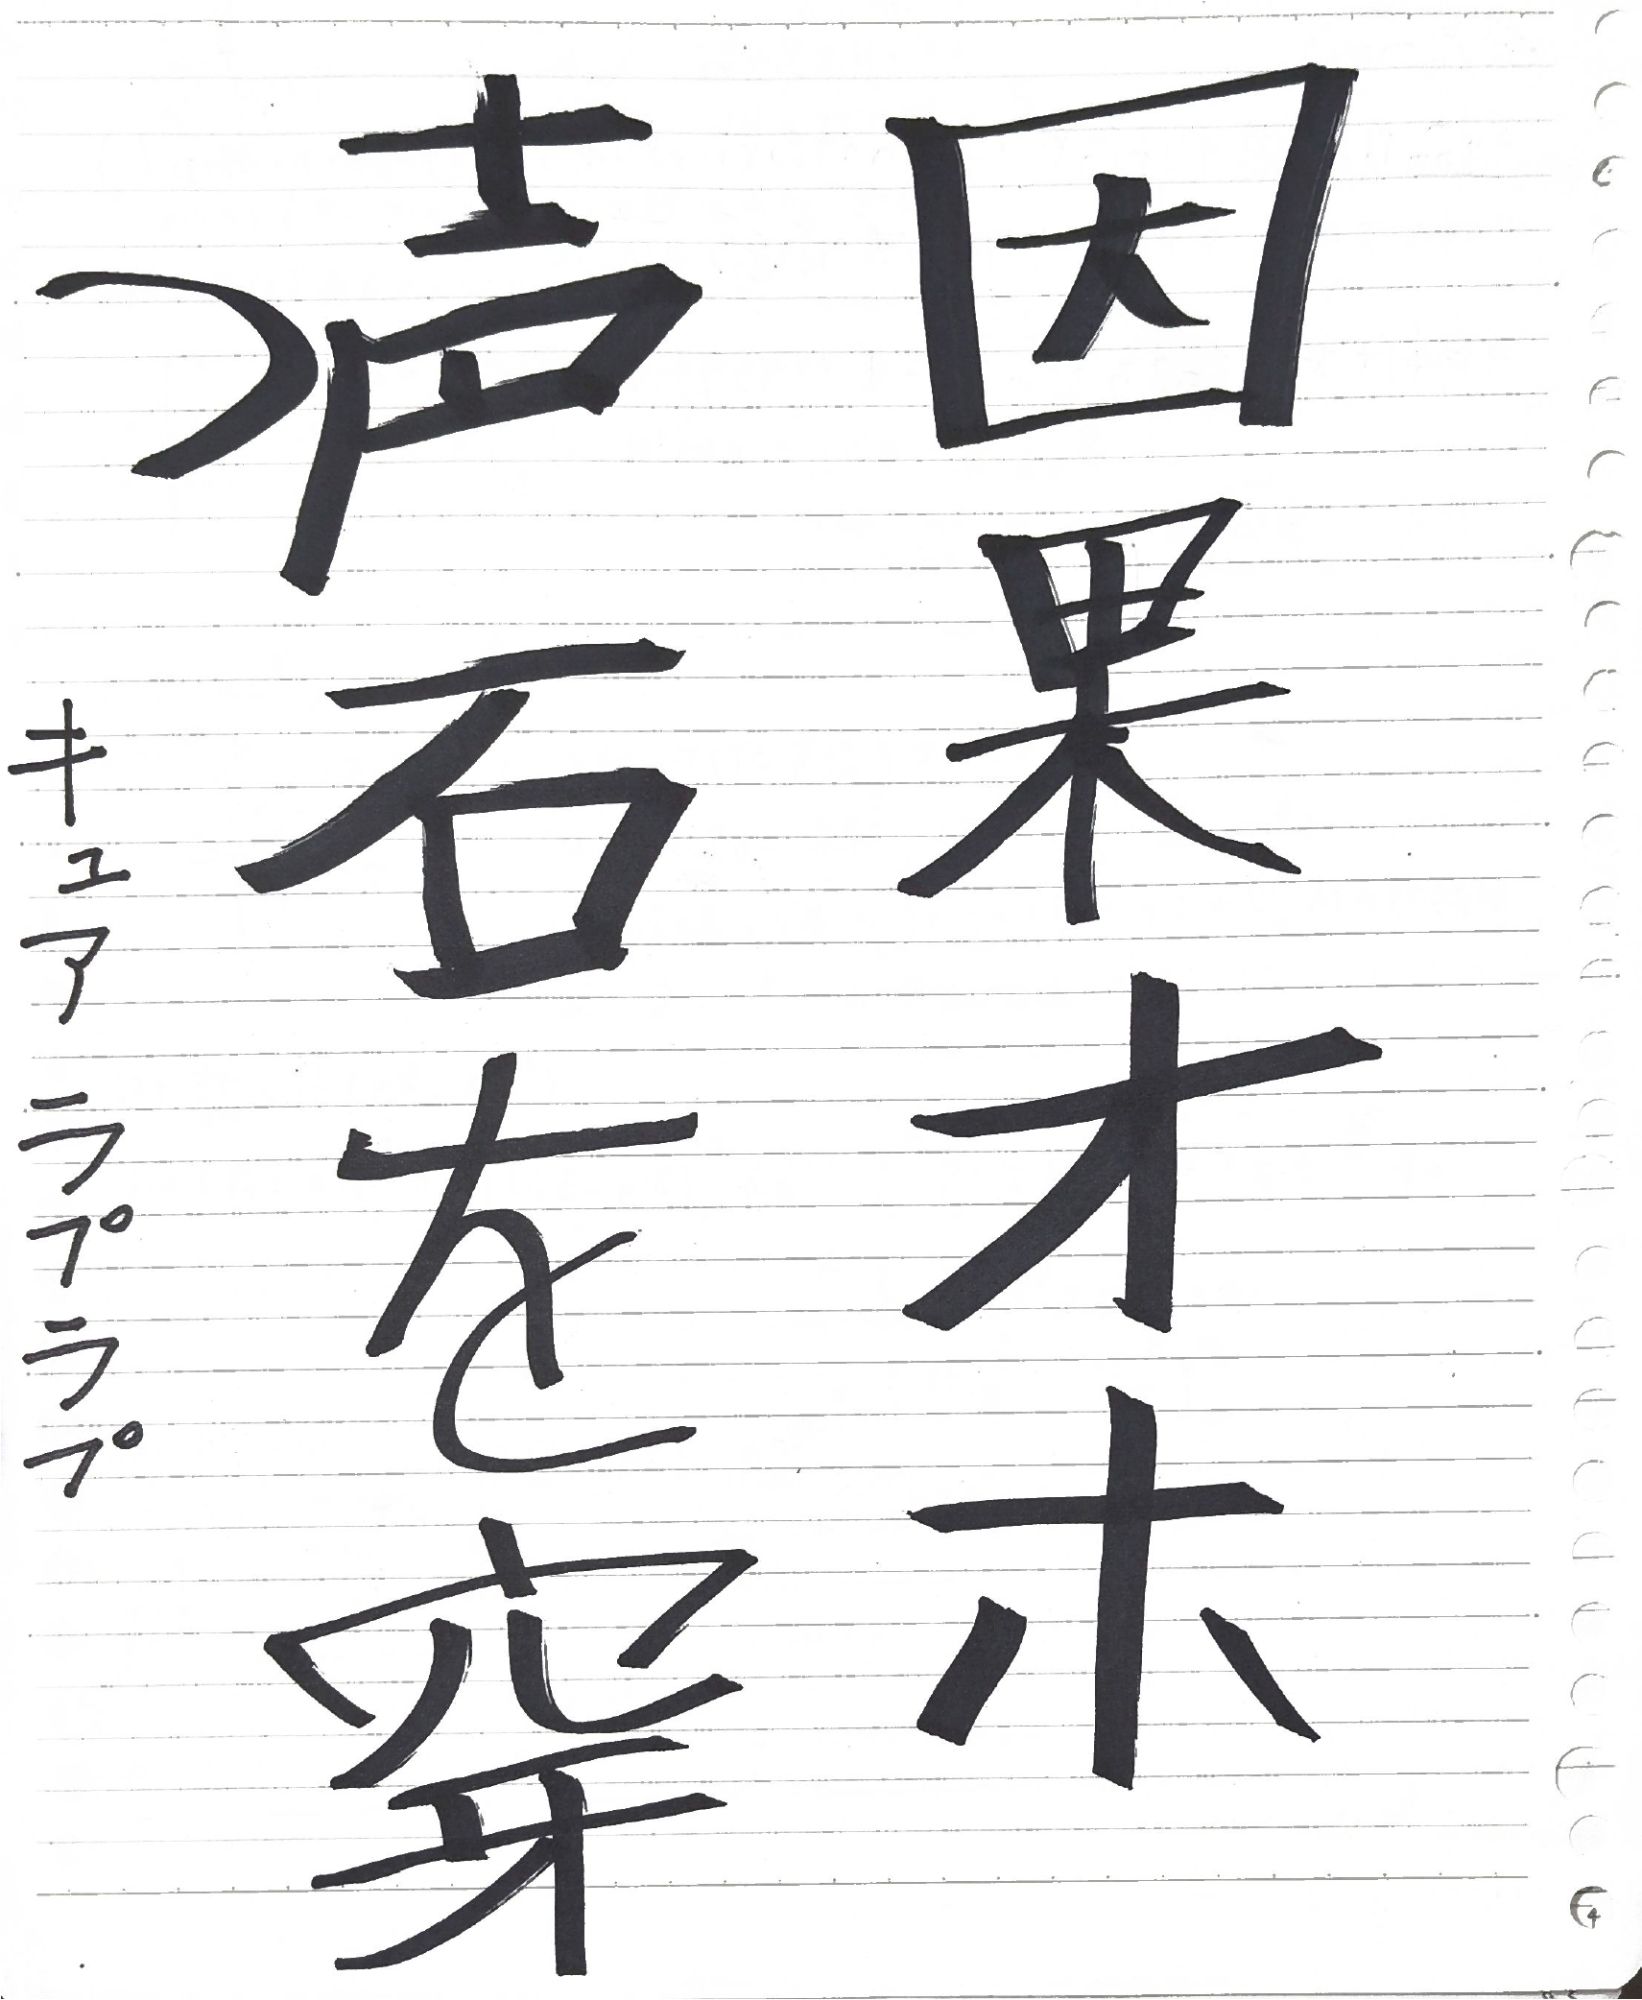 因果オホ
声石を穿
つ
キュアラプラプ